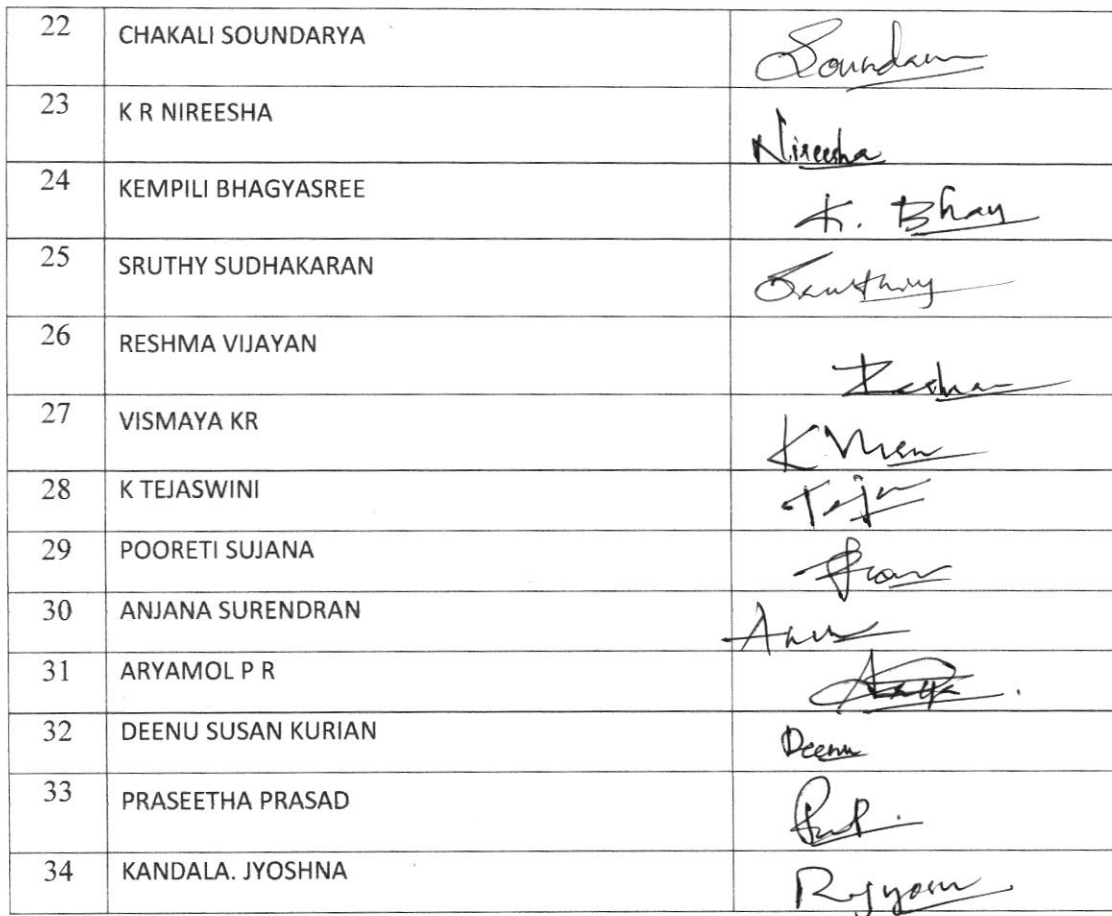 22 CHAKALI SOUNDARYA
23 K R NIREESHA Nireesha
24 KEMPILI BHAGYASREE K. Bhay
25 SRUTHY SUDHAKARAN
26 RESHMA VIJAYAN
27 VISMAYA KR
28 K TEJASWINI
29 POORETI SUJANA
30 ANJANA SURENDRAN
31 ARYAMOL P R
32 DEENU SUSAN KURIAN Deenu
33 PRASEETHA PRASAD
34 KANDALA. JYOSHNA